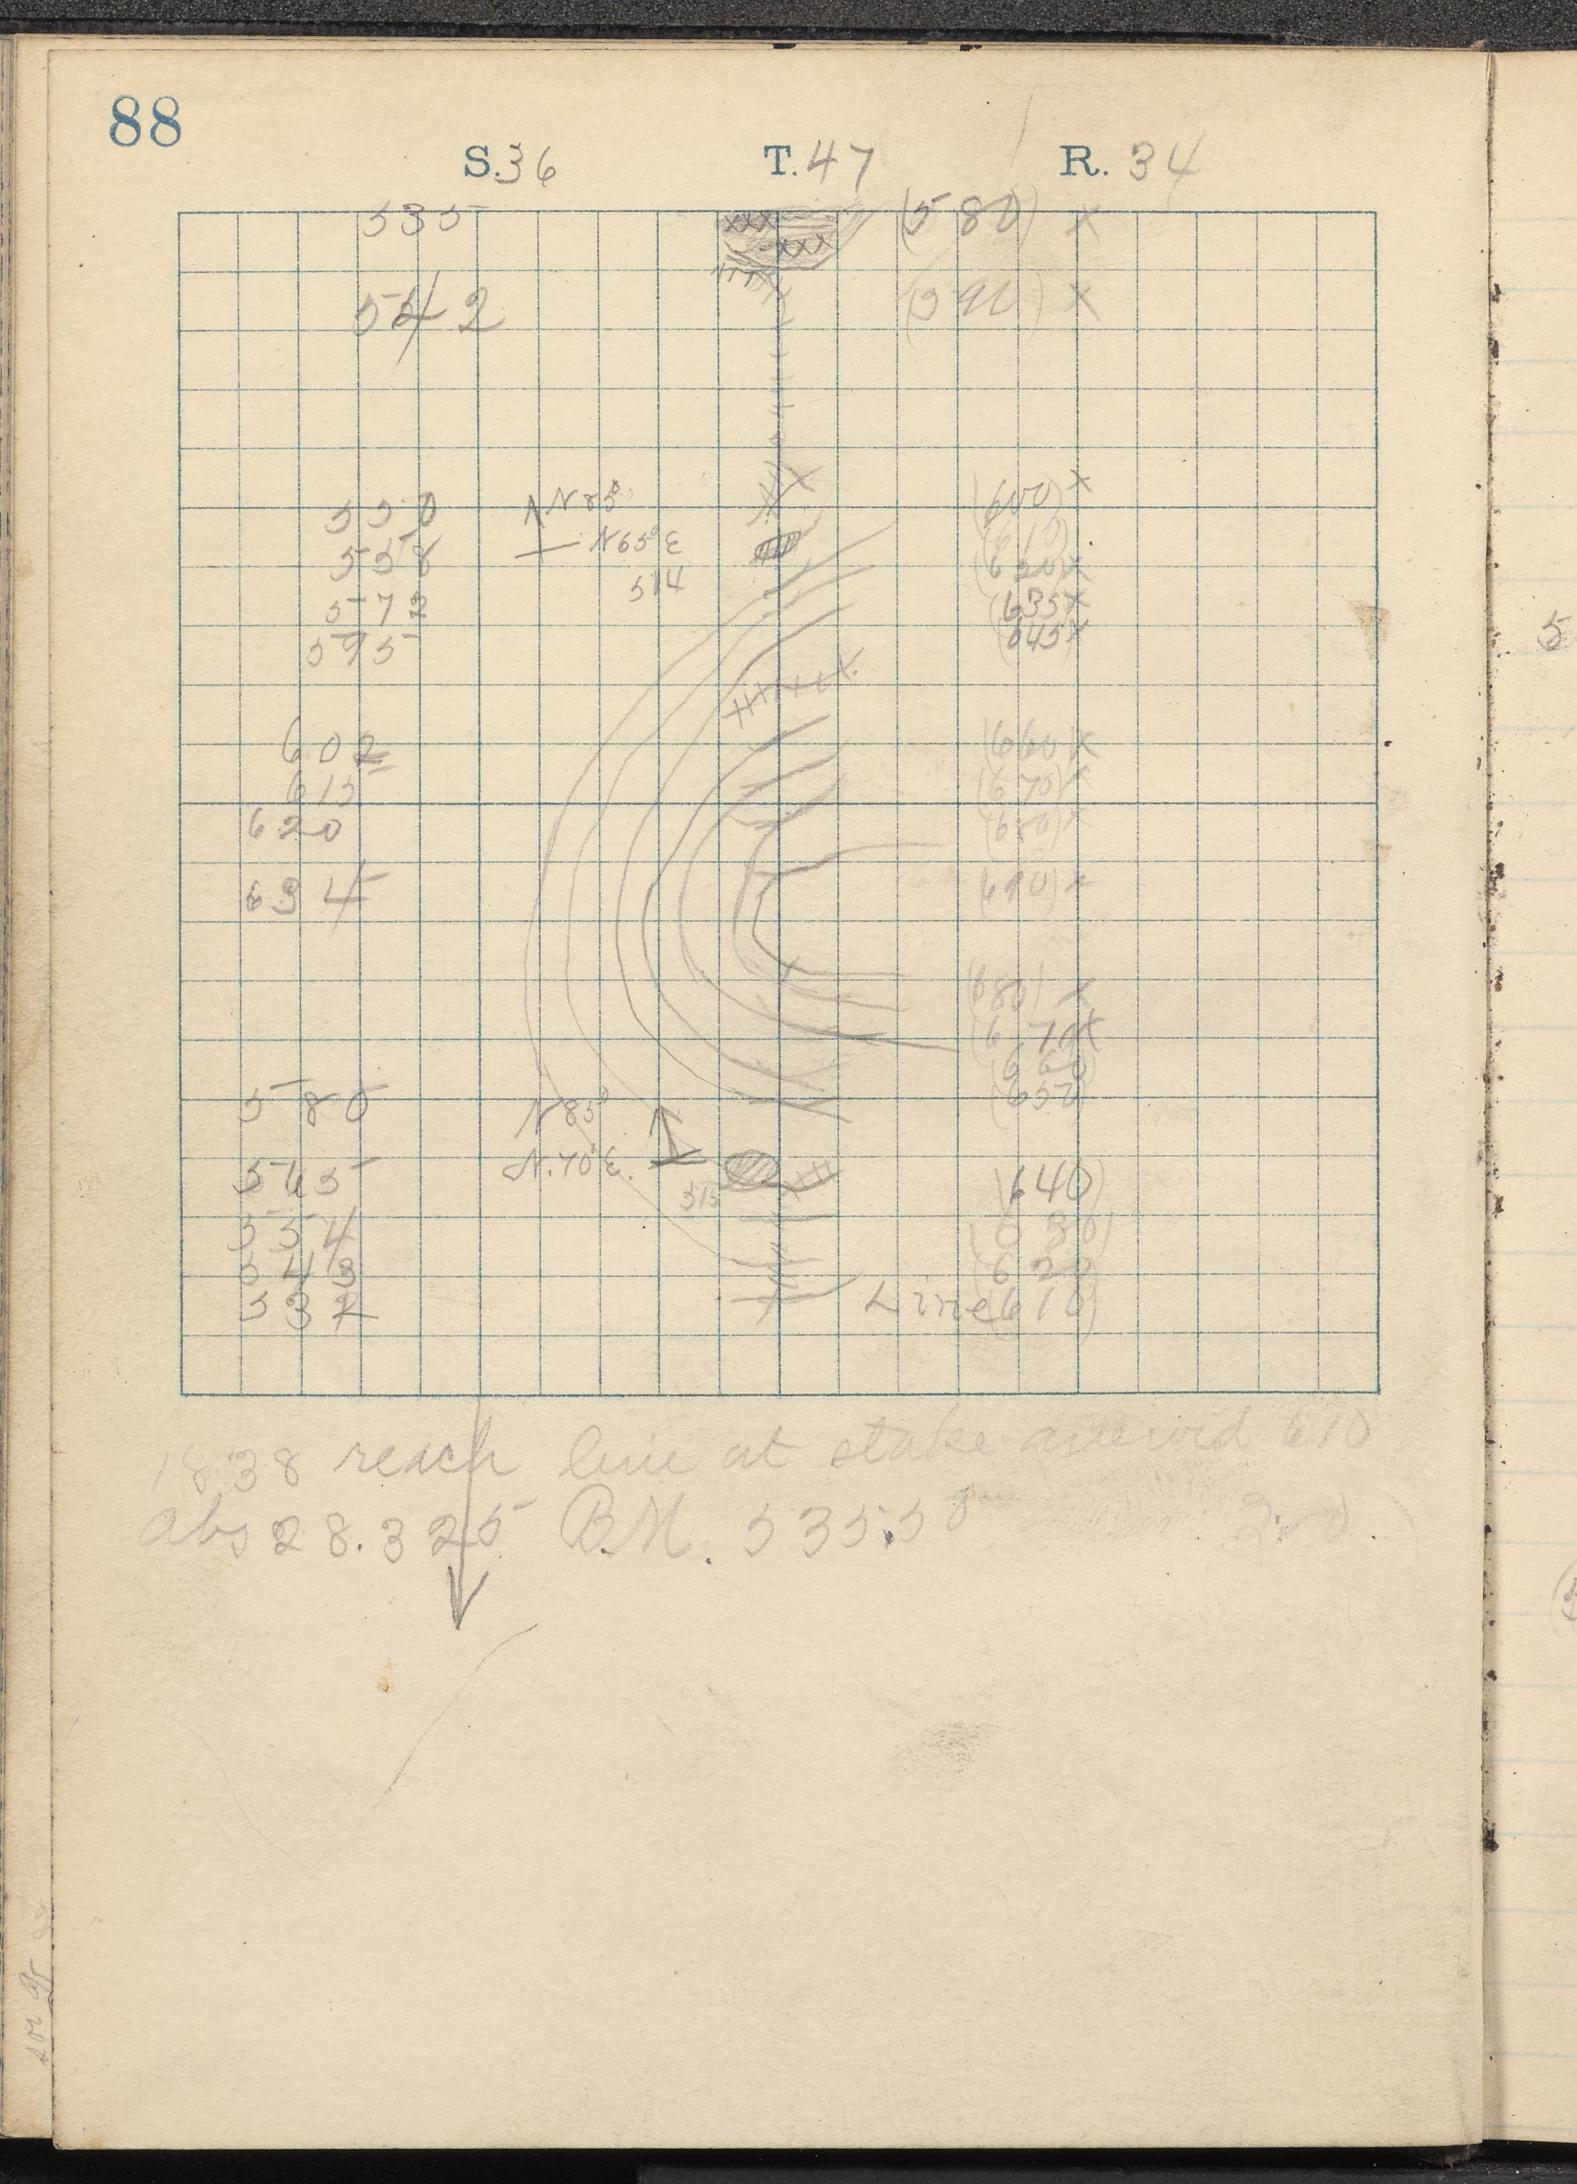 88
S. 36 T. 47 R. 34
535 (580) x
542 (590) x
550 N 85° (600) x
558 N 65° E (610)
572 514 (620) x
595 (635 x
(645 x
602 (660) x
615 (670) x
620 (680) x
634 (690) x
(680) x
(670 x
(660)
580 N 85° (650)
565 N. 70° E. 515 (640)
554 (630)
543 (620)
532 Line (610)
1838 reach line at stake 610
abs 28.325 B.M. 535.50